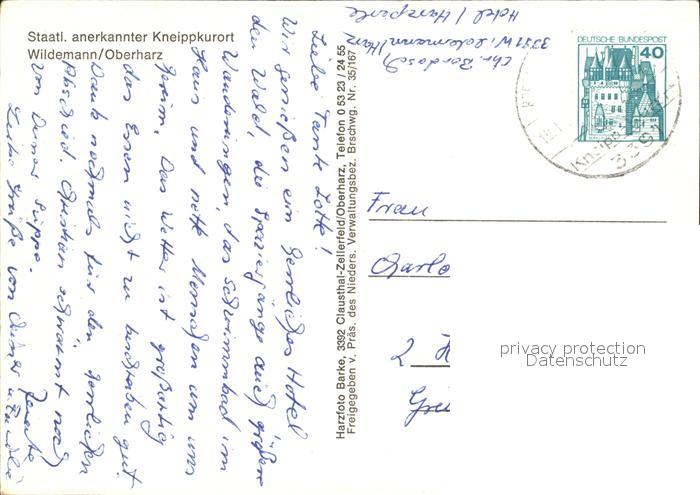 Staatl. anerkannter Kneippkurort
Wildemann/Oberharz
Hotel / Harzperle
3391 Wildemann/Harz
DEUTSCHE BUNDESPOST
40
Kneipp
339
Liebe Tante Lotte!
Wir genießen ein herrliches Hotel
den Wald, die Spaziergänge auch größere
Wanderungen, das Schwimmbad im
Haus und nette Menschen um uns
herum. Das Wetter ist großartig
das Essen nicht zu beschreiben gut.
Dank nochmals für den herrlichen
Abschied. Christian schwärmt noch
von Deiner Suppe.
Liebe Grüße von Deiner
Renate
Harzfoto Barke, 3392 Clausthal-Zellerfeld/Oberharz, Telefon 0 53 23 / 24 55
Freigegeben v. Präs. des Nieders. Verwaltungsbez. Brschwg. Nr. 35/167
Frau
Charlo
2
privacy protection
Datenschutz